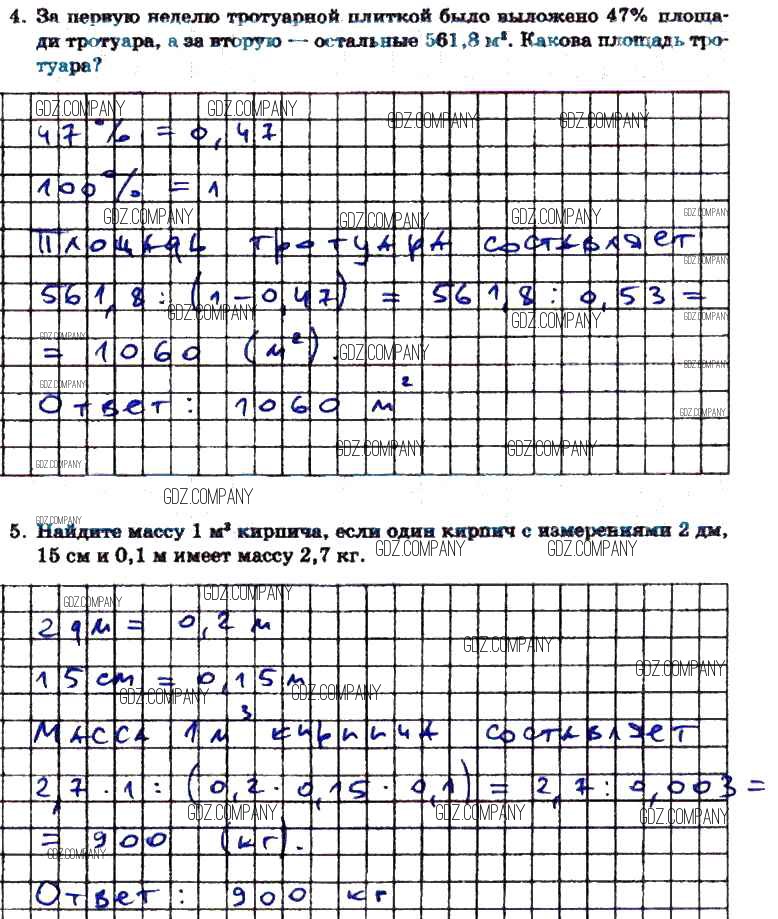 4. За первую неделю тротуарной плиткой было выложено 47% площа-
ди тротуара, а за вторую — остальные 561,8 м². Какова площадь тро-
туара?
GDZ.COMPANY GDZ.COMPANY GDZ.COMPANY GDZ.COMPANY
47% = 0,47
100% = 1
GDZ.COMPANY GDZ.COMPANY GDZ.COMPANY GDZ.COMPANY
Площадь тротуара составляет
GDZ.COMPANY
561,8 : (1 - 0,47) = 561,8 : 0,53 =
GDZ.COMPANY GDZ.COMPANY GDZ.COMPANY
= 1060 (м²).
GDZ.COMPANY GDZ.COMPANY GDZ.COMPANY
GDZ.COMPANY
Ответ: 1060 м²
GDZ.COMPANY
GDZ.COMPANY GDZ.COMPANY
GDZ.COMPANY
GDZ.COMPANY
GDZ.COMPANY
5. Найдите массу 1 м³ кирпича, если один кирпич с измерениями 2 дм,
15 см и 0,1 м имеет массу 2,7 кг.
GDZ.COMPANY GDZ.COMPANY
GDZ.COMPANY GDZ.COMPANY
2 дм = 0,2 м
GDZ.COMPANY
GDZ.COMPANY
15 см = 0,15 м
GDZ.COMPANY GDZ.COMPANY
Масса 1 м³ кирпича составляет
2,7 · 1 : (0,2 · 0,15 · 0,1) = 2,7 : 0,003 =
GDZ.COMPANY GDZ.COMPANY GDZ.COMPANY
= 900 (кг).
GDZ.COMPANY
Ответ: 900 кг